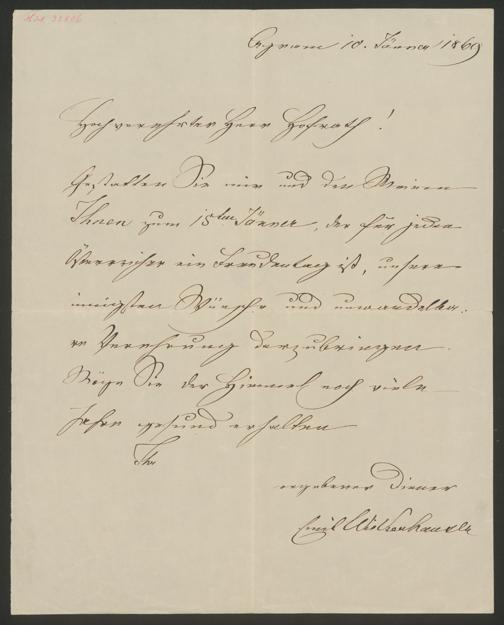 Agram 10. Jänner 1869
Hochverehrter Herr Hofrath!
Gestatten Sie mir und den Meinen
Ihnen zum 15ten Jänner, der für jeden
Österreicher ein Freudentag ist, unsere
innigsten Wünsche und unwandelba-
re Verehrung darzubringen.
Möge Sie der Himmel noch viele
Jahre gesund erhalten
Ihr
ergebener Diener
Emil